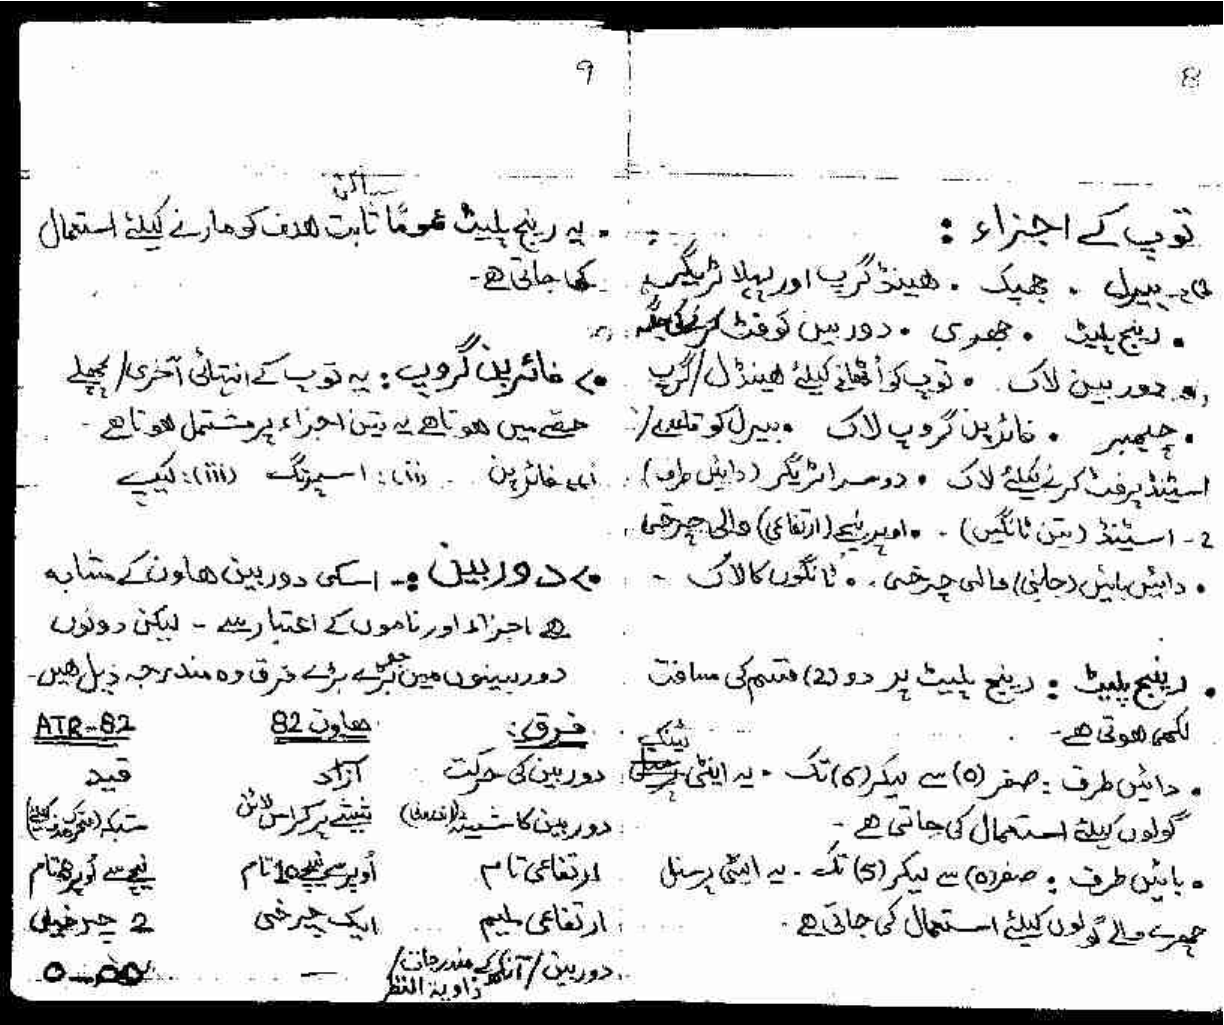 8
توپ کے اجزاء :
بیرل • جھپک • ھینڈ گرپ اور پہلا ٹریگر
• رینج پلیٹ • جھری • دوربین کو فٹ کرنے کی جگہ
• دوربین لاک • توپ کو اُٹھانے کیلئے ھینڈل/گرپ
• چیمبر • فائرپن گروپ لاک • بیرل کو
اسٹینڈ پر فٹ کرنے کیلئے لاک • دوسرا ٹریگر (دائیں طرف)
2- اسٹینڈ (تین ٹانگیں) • اوپر نیچے (ارتفاعی) والی چرخی
• دائیں بائیں (جانبی) والی چرخی • ٹانگوں کا لاک -
• رینج پلیٹ : رینج پلیٹ پر دو (2) قسم کی مسافت
لکھی ھوتی ھے -
• دائیں طرف : صفر (0) سے لیکر (6) تک • یہ اینٹی ٹینک
گولوں کیلئے استعمال کی جاتی ھے -
• بائیں طرف : صفر (0) سے لیکر (5) تک - یہ اینٹی پرسنل
چھرے والے گولوں کیلئے استعمال کی جاتی ھے -
9
• یہ رینج پلیٹ عموماً ثابت ساکن ھدف کو مارنے کیلئے استعمال
کی جاتی ھے -
فائرپن گروپ : یہ توپ کے انتہائی آخری/پچھلے
حصّے میں ھوتا ھے یہ تین اجزاء پر مشتمل ھوتا ھے -
(i) فائرپن (ii): اسپرنگ (iii): کیپ
دوربین :- اسکی دوربین ھاون کے مشابہ
ھے اجزاء اور ناموں کے اعتبار سے - لیکن دونوں
دوربینوں میں جو بڑے بڑے فرق وہ مندرجہ ذیل ھیں -
فرق : ھاون 82 ATR-82
دوربین کی حرکت آزاد قید
دوربین کا شیشہ (اندرونی) شیشے پر کراس لائن شبکہ
ارتفاعی تام اُوپر سے نیچے 10 تام نیچے سے اُوپر 8 تام
ارتفاعی ملیم ایک چرخی 2 چرخیاں
دوربین/آنکھ کے مندرجات/زاویۃ النظر — 0-00